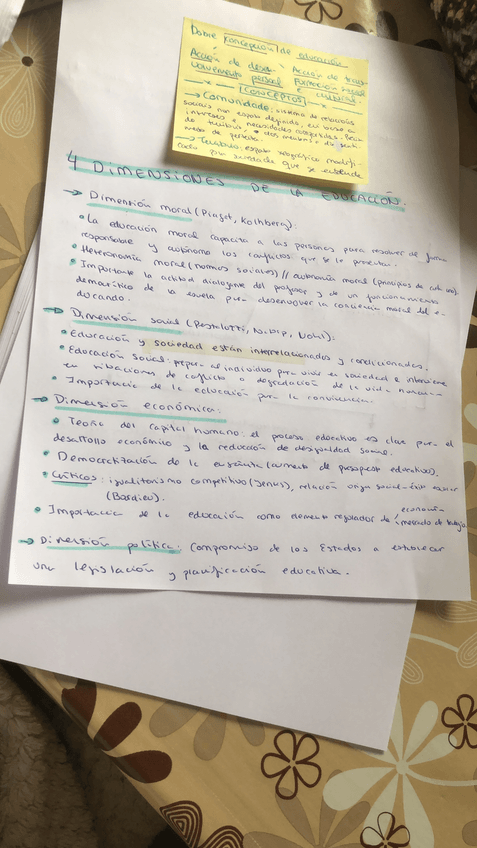 Doble concepción de educación
Acción de desen- Acción de trans-
volvemento persoal formación social
e cultural.
CONCEPTOS
→ Comunidade: sistema de relacións
sociais nun espazo definido, en base a
intereses e necesidades
de territorio,
→ Territorio: espazo xeográfico modifi-
cado por sociedade que se extende
4 DIMENSIONES DE LA EDUCACIÓN.
→ Dimensión moral (Piaget, Kolhberg):
• La educación moral capacita a las personas para resolver de forma
responsable y autónoma los conflictos que se le presentan.
• Heteronomía moral (normas sociales) // autonomía moral (principios de cada uno).
• Importante la actitud dialogante del profesor y de un funcionamiento
democrático de la escuela para desenvolver la conciencia moral del e-
ducando.
→ Dimensión social (Pestalozzi, Natorp, Nohl):
• Educación y sociedad están interrelacionados y condicionados.
• Educación Social: prepara al individuo para vivir en sociedad e interviene
en situaciones de conflicto o degradación de la vida humana.
• Importancia de la educación para la convivencia.
→ Dimensión económica:
• Teoría del capital humano: el proceso educativo es clave para el
desarrollo económico y la reducción de desigualdad social.
• Democratización de la enseñanza (aumento de presupuesto educativo).
• Críticas: igualitarismo competitivo (Jenks), relación origen social-éxito escolar
(Bordieu).
• Importancia de la educación como elemento regulador de economía e mercado de trabajo
→ Dimensión política: Compromiso de los Estados a establecer
una legislación y planificación educativa.